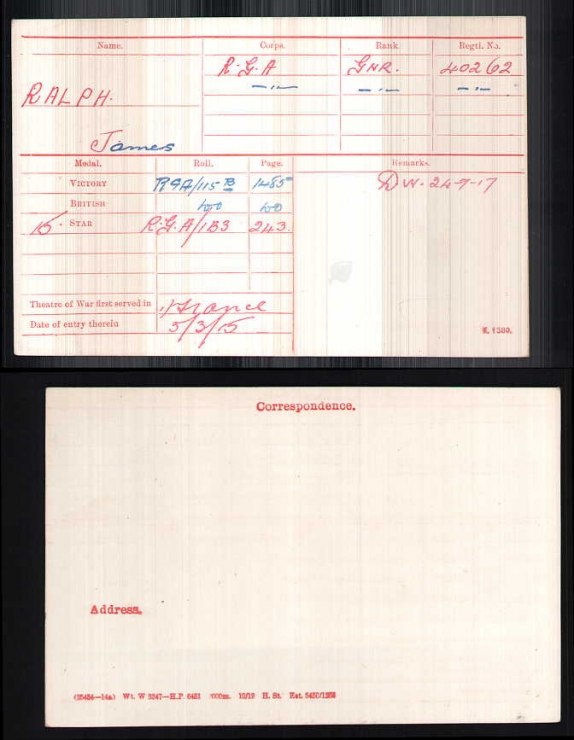 Name. Corps. Rank. Regtl. No.
R.G.A GNR. 40262
RALPH. —〃— —〃— —〃—
James
Medal. Roll. Page. Remarks.
VICTORY RGA/115 B 1485 D.W. 24-7-17
BRITISH do do
15. STAR R.G.A/1B3 243.
Theatre of War first served in (1) France
Date of entry therein 5/3/15
K. 1380.
Correspondence.
Address.
(25434—14a) Wt. W 3247—H.P. 6481 1000m. 10/19 H. St.